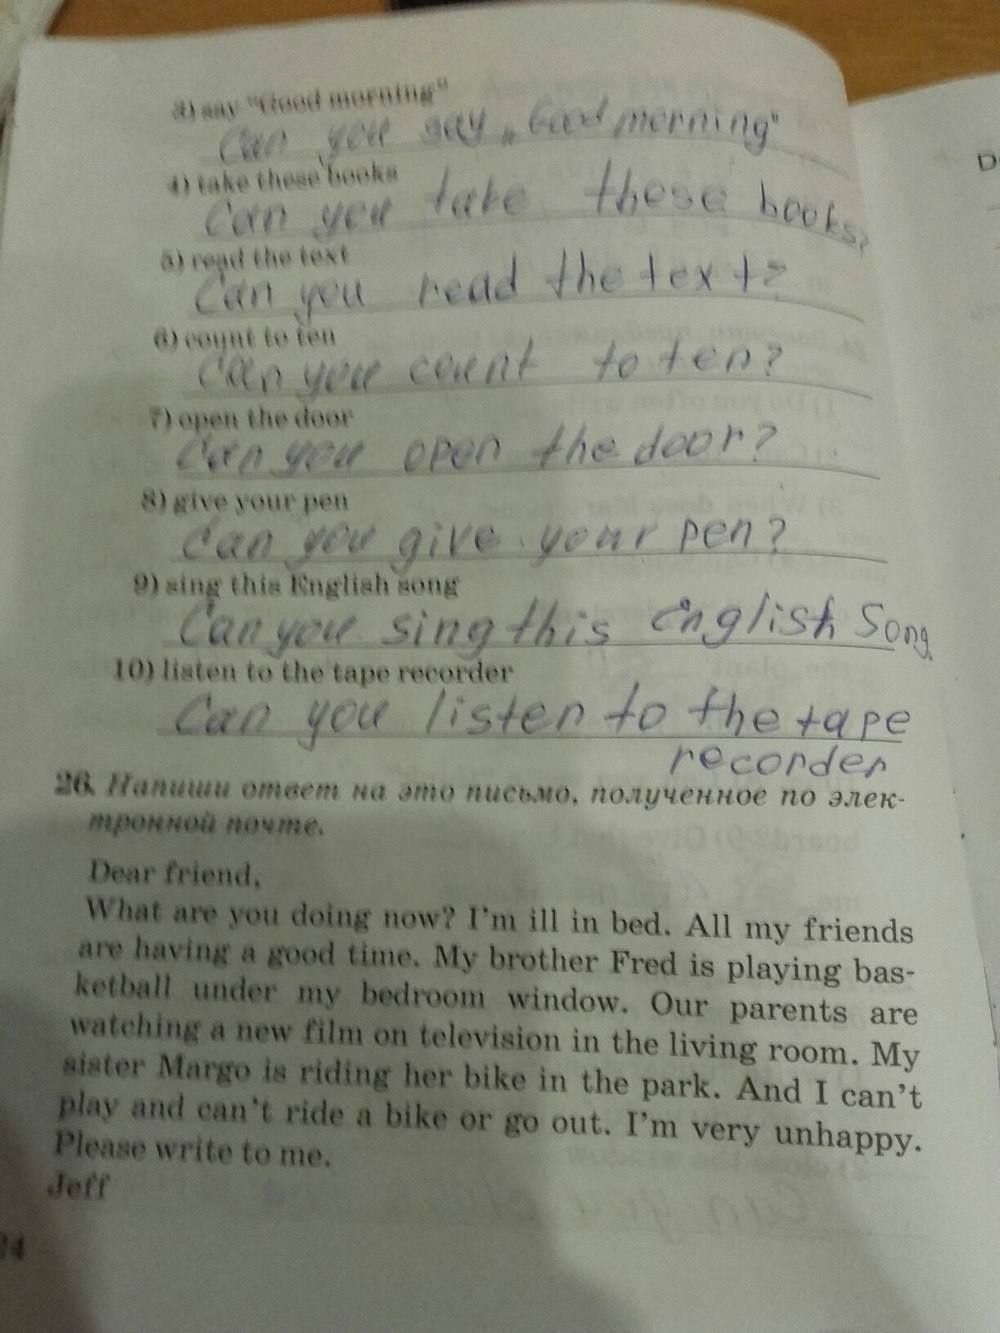 3) say "Good morning"
Can you say „Good morning"
4) take these books
Can you take these books?
5) read the text
Can you read the text?
6) count to ten
Can you count to ten?
7) open the door
Can you open the door?
8) give your pen
Can you give your pen?
9) sing this English song
Can you sing this english Song
10) listen to the tape recorder
Can you listen to the tape
recorder
26. Напиши ответ на это письмо, полученное по элек-
тронной почте.
Dear friend,
What are you doing now? I'm ill in bed. All my friends
are having a good time. My brother Fred is playing bas-
ketball under my bedroom window. Our parents are
watching a new film on television in the living room. My
sister Margo is riding her bike in the park. And I can't
play and can't ride a bike or go out. I'm very unhappy.
Please write to me.
Jeff